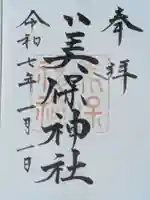 奉拝
美保神社
令和七年一月一日